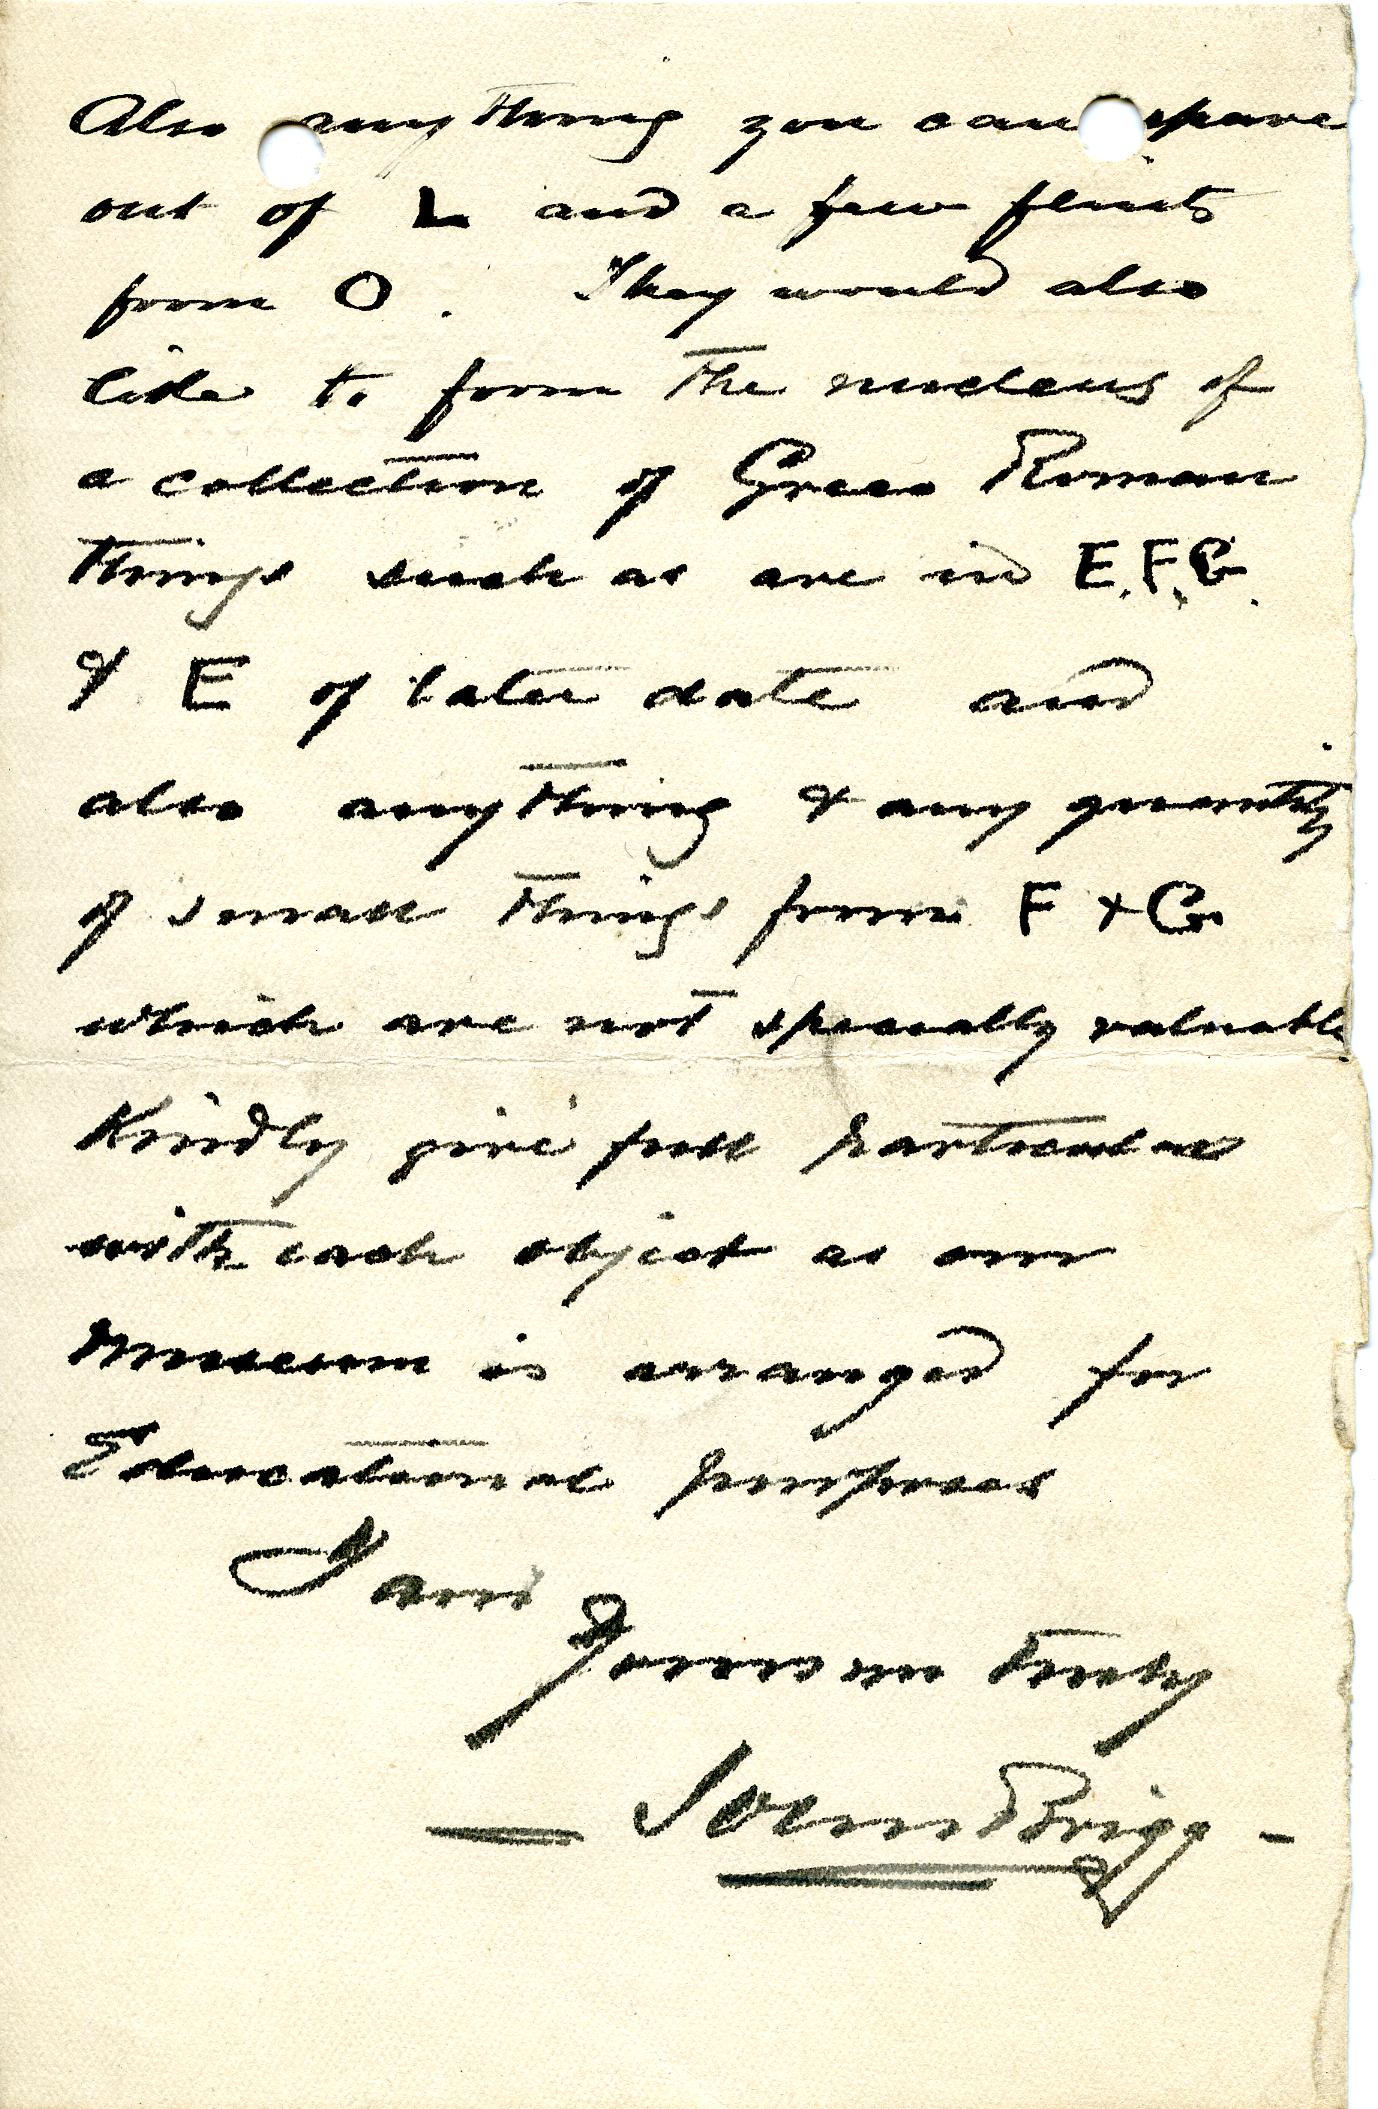 Also anything you can spare
out of L and a few flints
from O. They would also
like to form the nucleus of
a collection of Greco Roman
things such as are in E.F.G.
& E of later date and
also anything & any quantity
of small things from F + G
which are not specially valuable
Kindly give full particulars
with each object as our
Museum is arranged for
Educational purposes
I am
Yours very truly
John Brigg